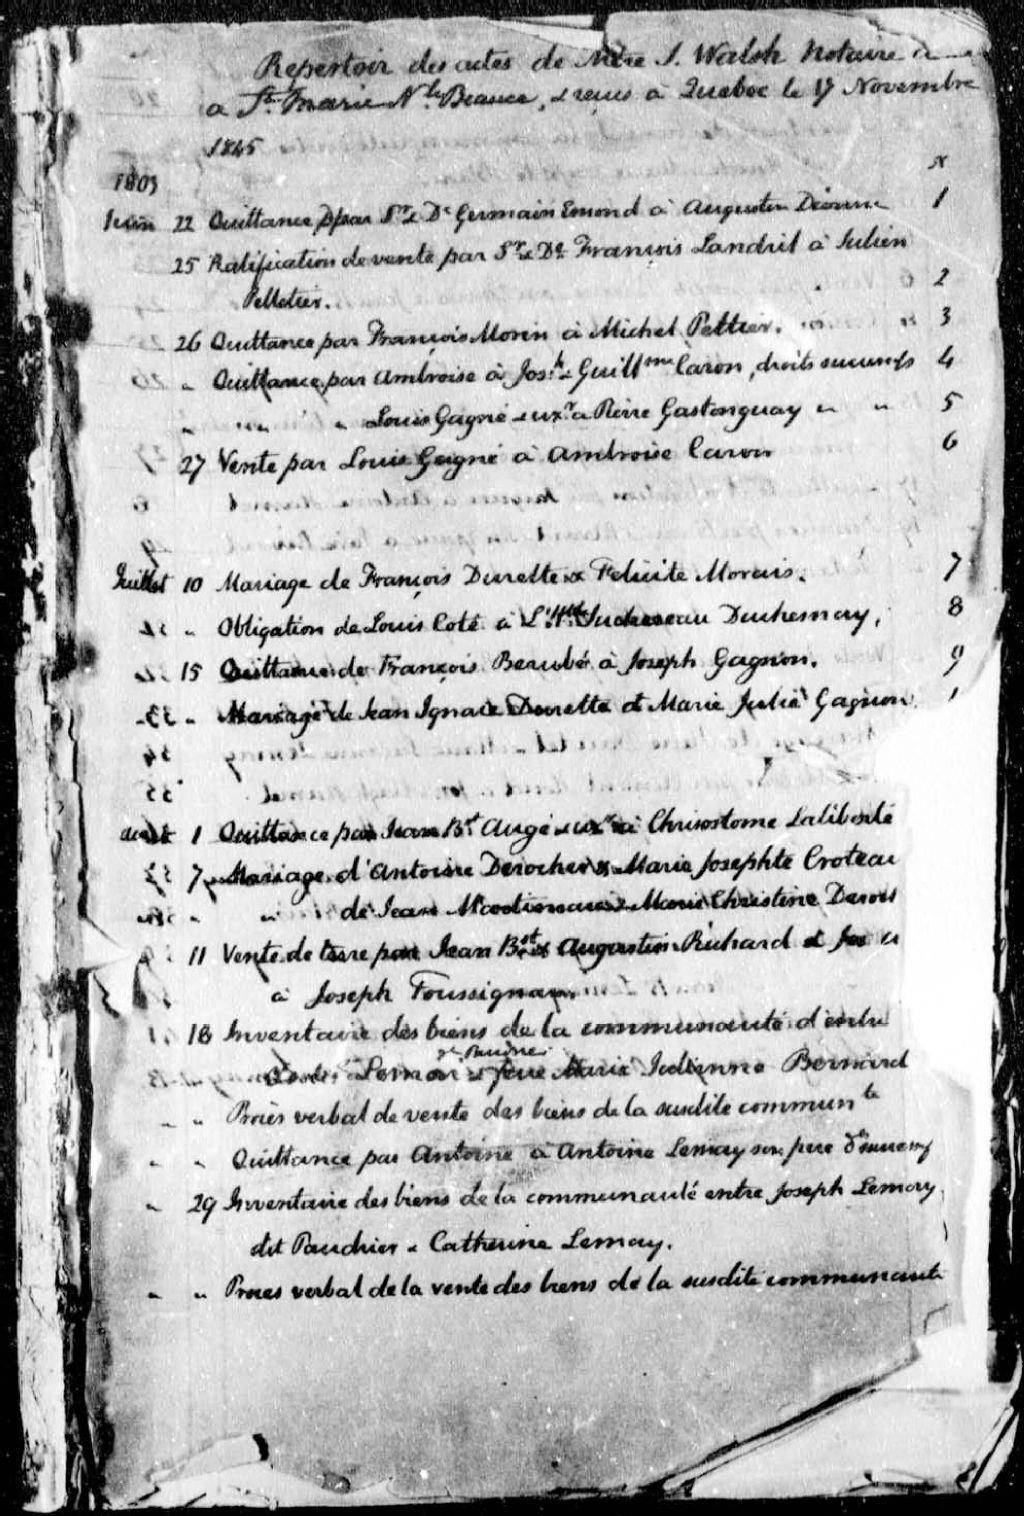 Repertoir des actes de Mtre J. Walsh Notaire
a Ste Marie Nlle Beauce, & reçus à Quebec le 17 Novembre
1845
1803
N
Juin 22 Quittance par Sr & De Germain Emond à Augustin Dionne 1
25 Ratification de vente par Sr & De François Landril à Julien
Pelletier. 2
26 Quittance par François Morin à Michel Peltier. 3
" Quittance par Ambroise à Josh & Guillme Caron, droits success 4
" " " Louis Gagné & uxr à Pierre Gastonguay " " 5
27 Vente par Louis Gagné à Ambroise Caron 6
Juillet 10 Mariage de François Durette & Felicite Morais. 7
" Obligation de Louis Coté à L'Hble Juchereau Duchesnay, 8
15 Quittance de François Berubé à Joseph Gagnon. 9
" Mariage de Jean Ignace Durette et Marie Julie Gagnon 1
Aout 1 Quittance par Jean Bst Augé & uxr à Chrisostome Laliberté
7 Mariage d'Antoine Derocher & Marie Josephte Croteau
" " de Jean & Marie Christine
11 Vente de terre par Jean Bst & Augustin Richard et
à Joseph Toussignan
18 Inventaire des biens de la communauté d'entre
Lemay & feue Marie Julienne Bernard
" " Procès verbal de vente des biens de la susdite communte
" " Quittance par Antoine à Antoine Lemay son pere
" 29 Inventaire des biens de la communauté entre Joseph Lemay
dit Poudrier & Catherine Lemay.
" " Proces verbal de la vente des biens de la susdite communauté